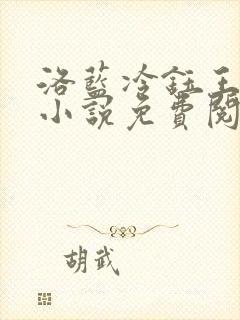 洛藍冷鈺王
小說免費閱
胡武